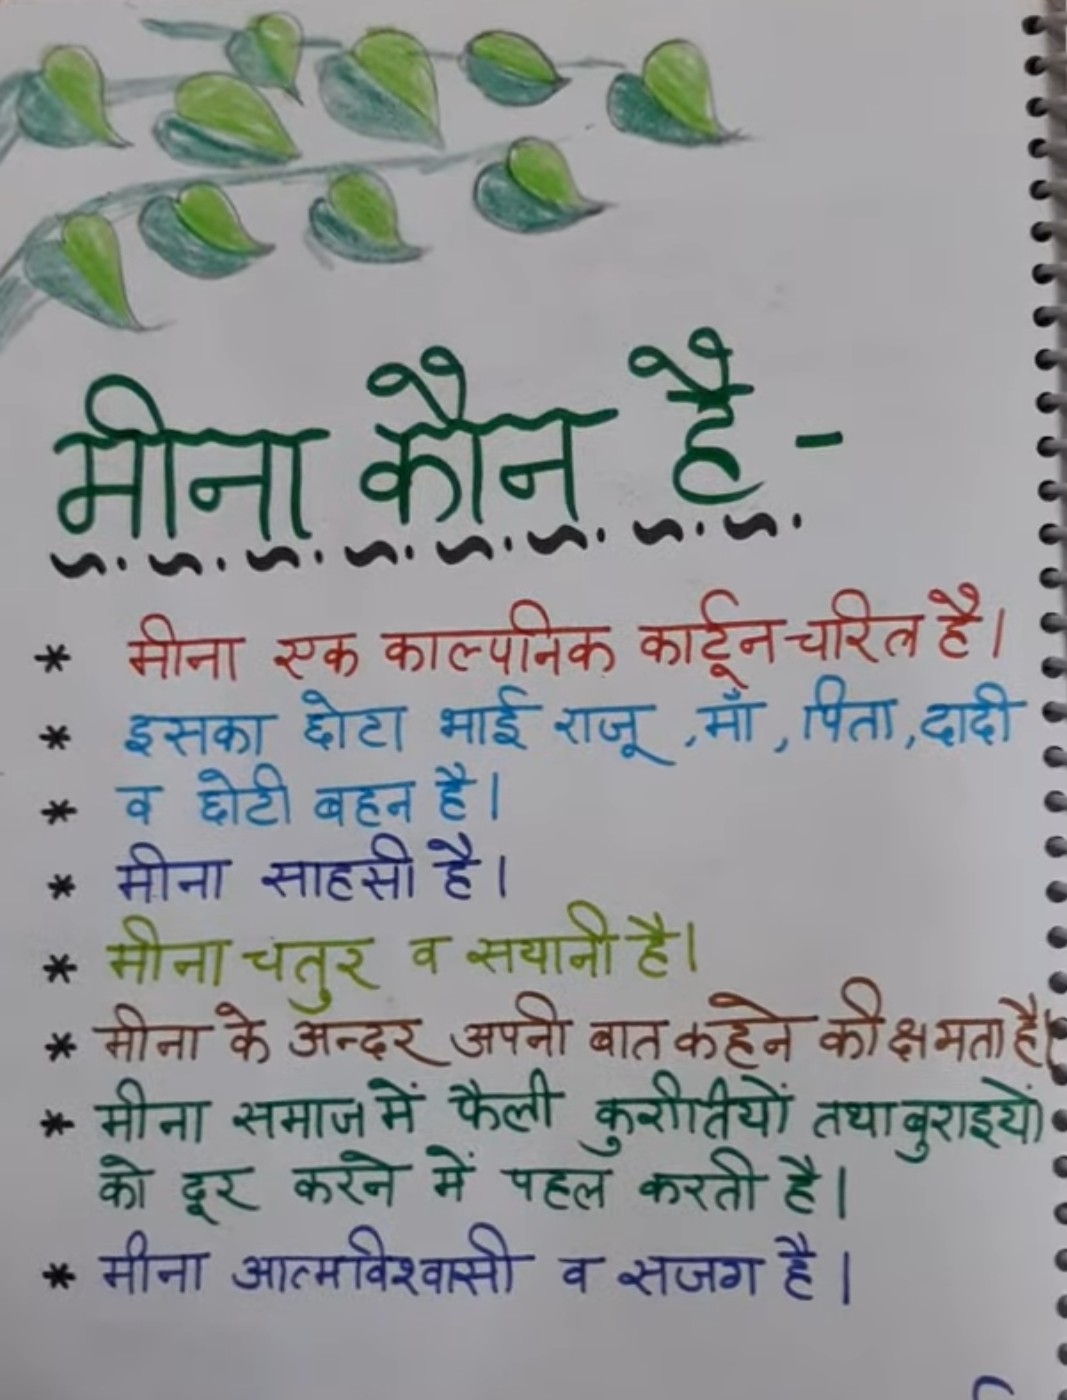 मीना कौन है -
* मीना एक काल्पनिक कार्टून चरित्र है।
* इसका छोटा भाई राजू , माँ , पिता , दादी
* व छोटी बहन है।
* मीना साहसी है।
* मीना चतुर व सयानी है।
* मीना के अन्दर अपनी बात कहने की क्षमता है।
* मीना समाज में फैली कुरीतियों तथा बुराइयों
को दूर करने में पहल करती है।
* मीना आत्मविश्वासी व सजग है।